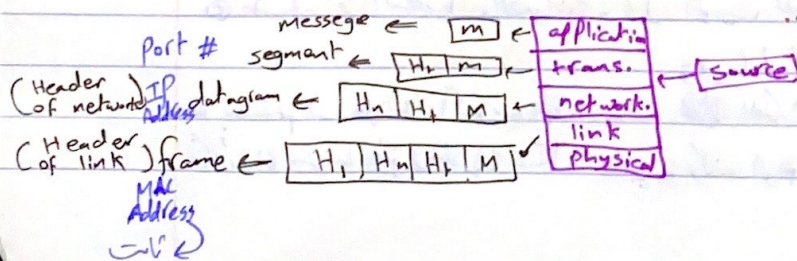 messege ← m ← applicatio
Port # segment ← Ht m ← trans. ← source
(Header of network) IP Address datagram ← Hn Ht M ← network.
link
(Header of link) frame ← Hl Hn Ht M physical
MAC
Address
ثابت